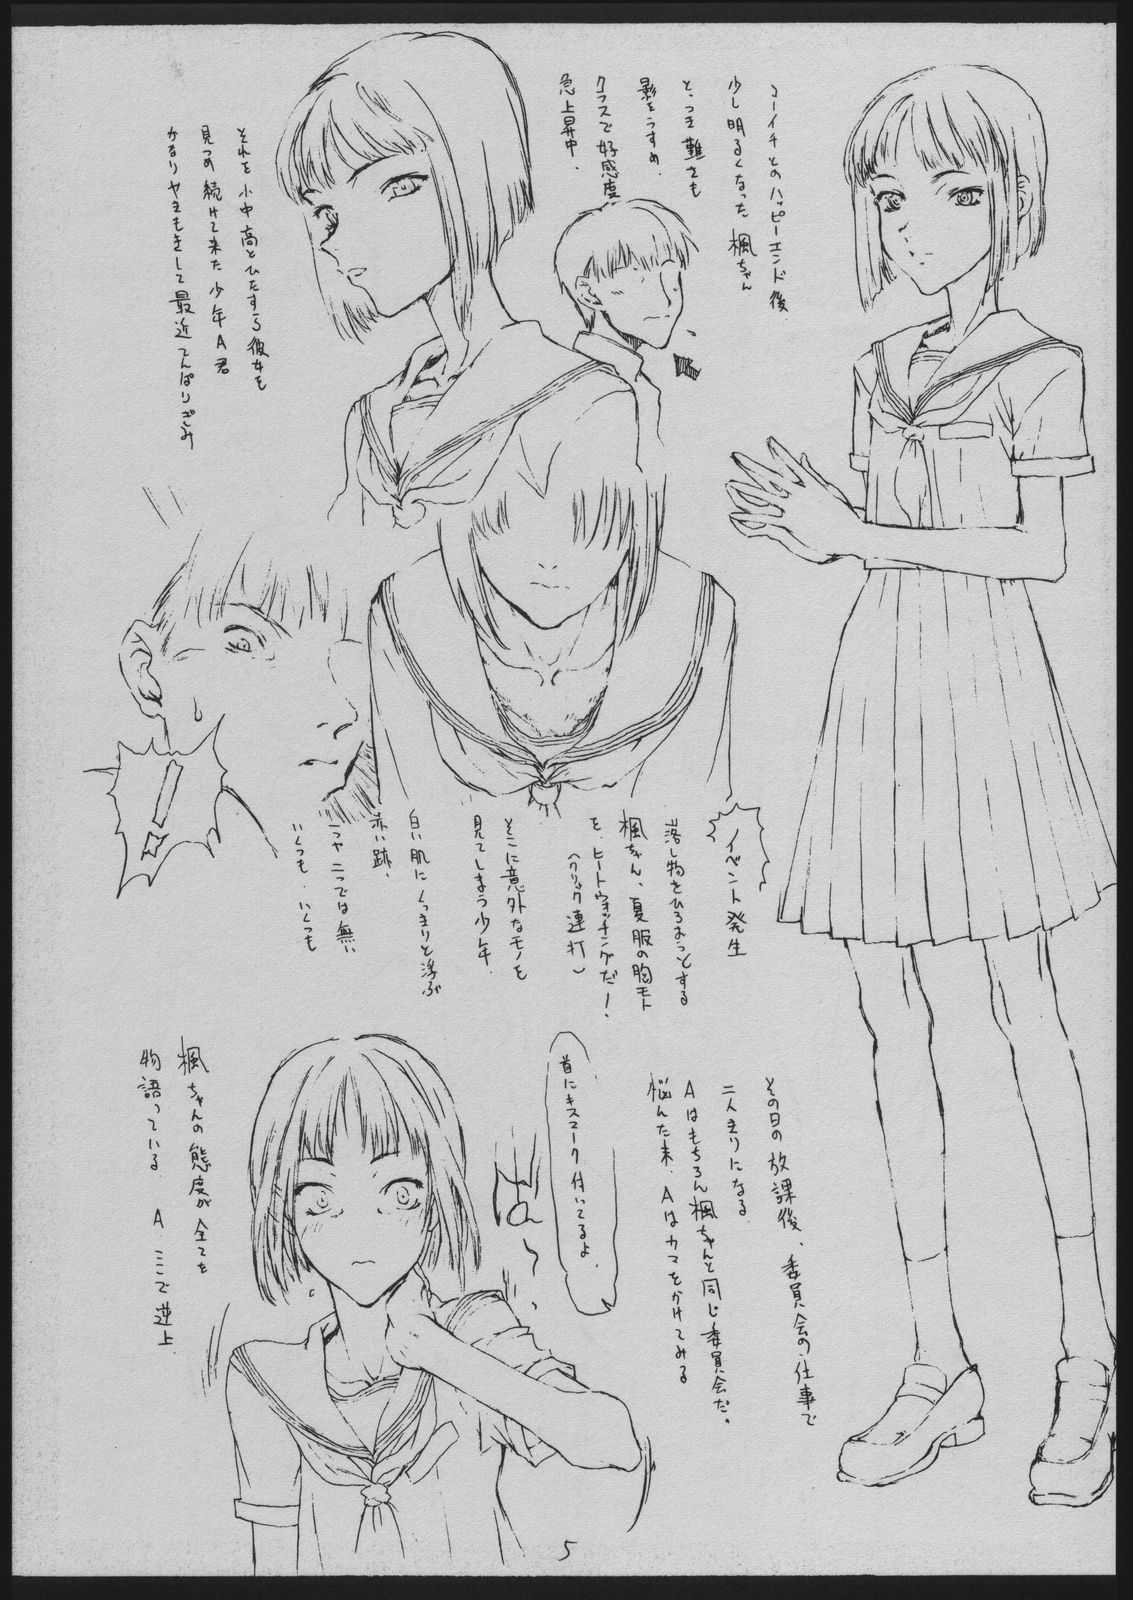 コーイチとのハッピーエンド後
少し明るくなった楓ちゃん
とっつき難さも
影をうすめ、
クラスで好感度
急上昇中。
それを小中高とひたすら彼女を
見つめ続けて来た少年A君
かなりヤキモキして最近てんぱりぎみ
イベント発生
落し物をひろおっとする
楓ちゃん、夏服の胸モト
を、ヒートウォッチングだ!
(クリック連打)
そこに意外なモノを
見てしまう少年、
白い肌にくっきりと浮ぶ
赤い跡、
一つや二つでは無い
いくつも、いくつも
その日の放課後、委員会の仕事で
二人きりになる
Aはもちろん楓ちゃんと同じ委員会だ。
悩んだ末、Aはカマをかけてみる
首にキスマーク付いてるよ
ばん〜
楓ちゃんの態度が全てを
物語っている A ここで逆上
5